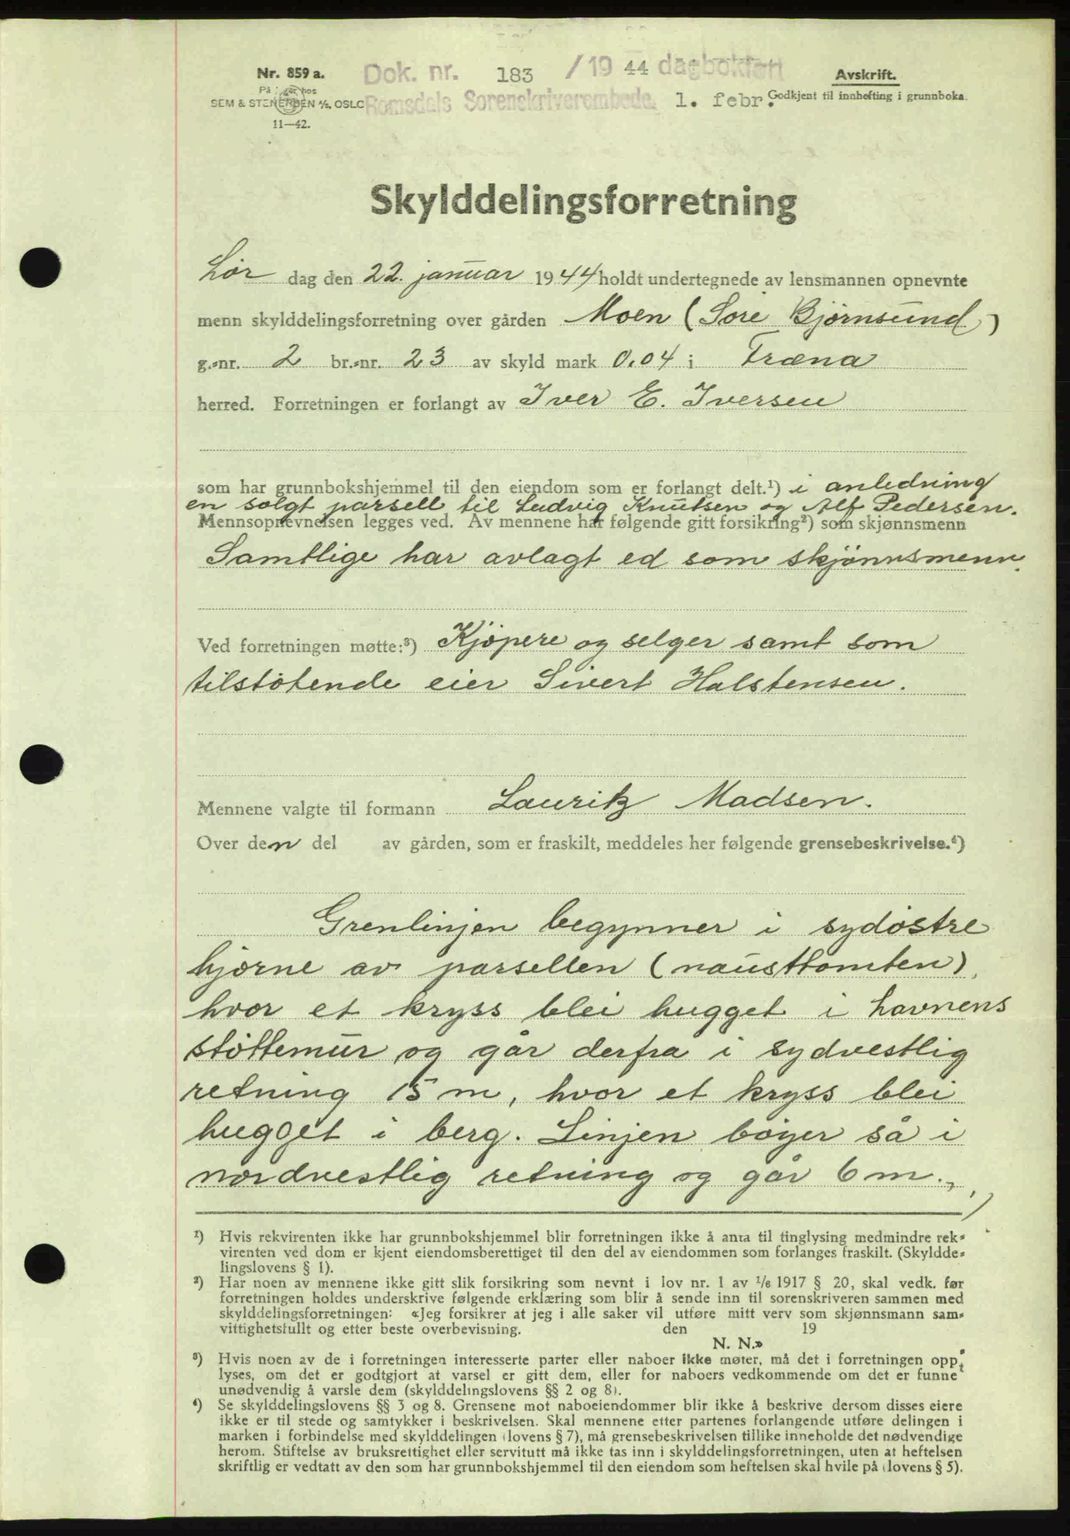 Nr. 859 a.
På lager hos
SEM & STENERSEN A/S, OSLO
11—42.
Dok. nr. 183 /19 44 dagbokført
Romsdals Sorenskriverembede. 1. febr.
Avskrift.
Godkjent til innhefting i grunnboka.
Skylddelingsforretning
Lør dag den 22. januar 1944 holdt undertegnede av lensmannen opnevnte
menn skylddelingsforretning over gården Moen (Søre Bjørnsund)
g.-nr. 2 br.-nr. 23 av skyld mark 0.04 i Fræna
herred. Forretningen er forlangt av Iver E. Iversen
som har grunnbokshjemmel til den eiendom som er forlangt delt.¹) i anledning
en solgt parsell til Ludvig Knutsen og Alf Pedersen.
Mennsopnevnelsen legges ved. Av mennene har følgende gitt forsikring²) som skjønnsmenn
Samtlige har avlagt ed som skjønnsmenn.
Ved forretningen møtte:³) Kjøpere og selger samt som
tilstøtende eier Sivert Halstensen.
Mennene valgte til formann Lauritz Madsen.
Over den del av gården, som er fraskilt, meddeles her følgende grensebeskrivelse.⁴)
Grenlinjen begynner i sydøstre
hjørne av parsellen (nausttomten),
hvor et kryss blei hugget i havnens
støttemur og går derfra i sydvestlig
retning 15 m, hvor et kryss blei
hugget i berg. Linjen bøyer så i
nordvestlig retning og går 6 m.,
¹) Hvis rekvirenten ikke har grunnbokshjemmel blir forretningen ikke å anta til tinglysing medmindre rek-
virenten ved dom er kjent eiendomsberettiget til den del av eiendommen som forlanges fraskilt. (Skyldde-
lingslovens § 1).
²) Har noen av mennene ikke gitt slik forsikring som nevnt i lov nr. 1 av 1/6 1917 § 20, skal vedk. før
forretningen holdes underskrive følgende erklæring som blir å sende inn til sorenskriveren sammen med
skylddelingsforretningen: «Jeg forsikrer at jeg i alle saker vil utføre mitt verv som skjønnsmann sam-
vittighetsfullt og etter beste overbevisning. den 19
N. N.»
³) Hvis noen av de i forretningen interesserte parter eller naboer ikke møter, må det i forretningen opp-
lyses, om det er godtgjort at varsel er gitt dem, eller for naboers vedkommende om det er funnet
unødvendig å varsle dem (skylddelingslovens §§ 2 og 8).
⁴) Se skylddelingslovens §§ 3 og 8. Grensene mot naboeiendommer blir ikke å beskrive dersom disses eiere
ikke er til stede og samtykker i beskrivelsen. Skal mennene etter partenes forlangende utføre delingen i
marken i forbindelse med skylddelingen (lovens § 7), må grensebeskrivelsen tillike inneholde det nødvendige
herom. Stiftelse av bruksrettighet eller servitutt må ikke tas inn i skylddelingsforretningen, uten at heftelsen
skriftlig er vedtatt av den som har grunnbokshjemmel til den eiendom som heftelsen skal hvile på (lovens § 5).